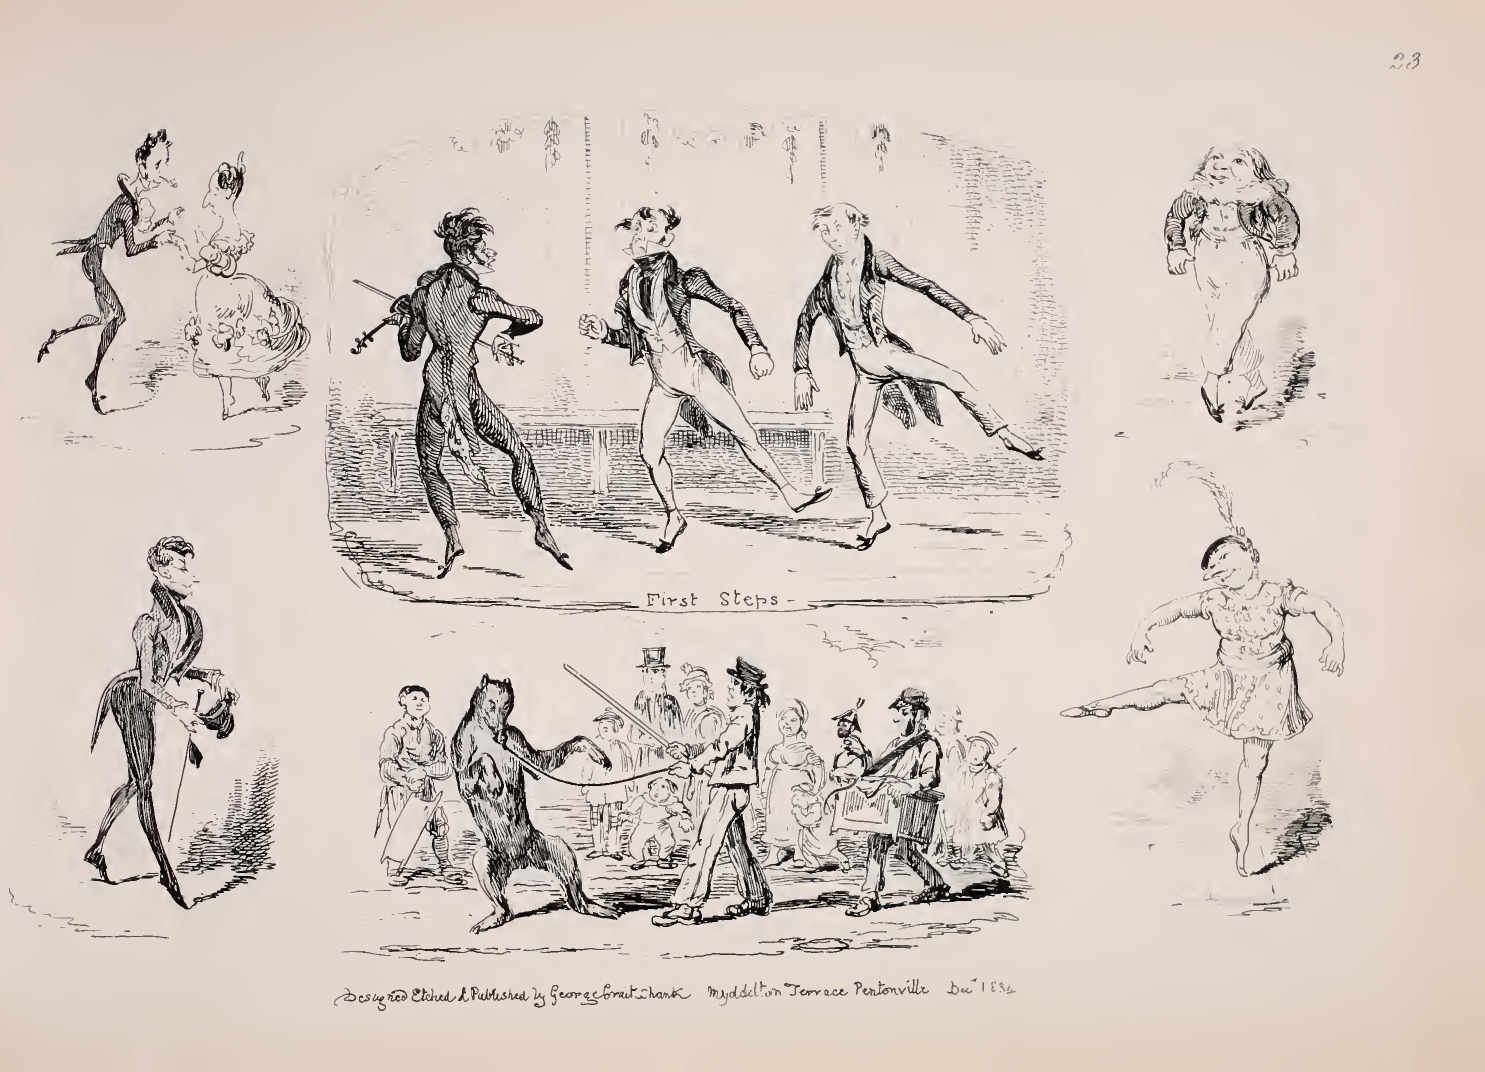 23
First Steps -
Designed Etched & Published by George Cruikshank Myddelton Terrace Pentonville Decr 1834